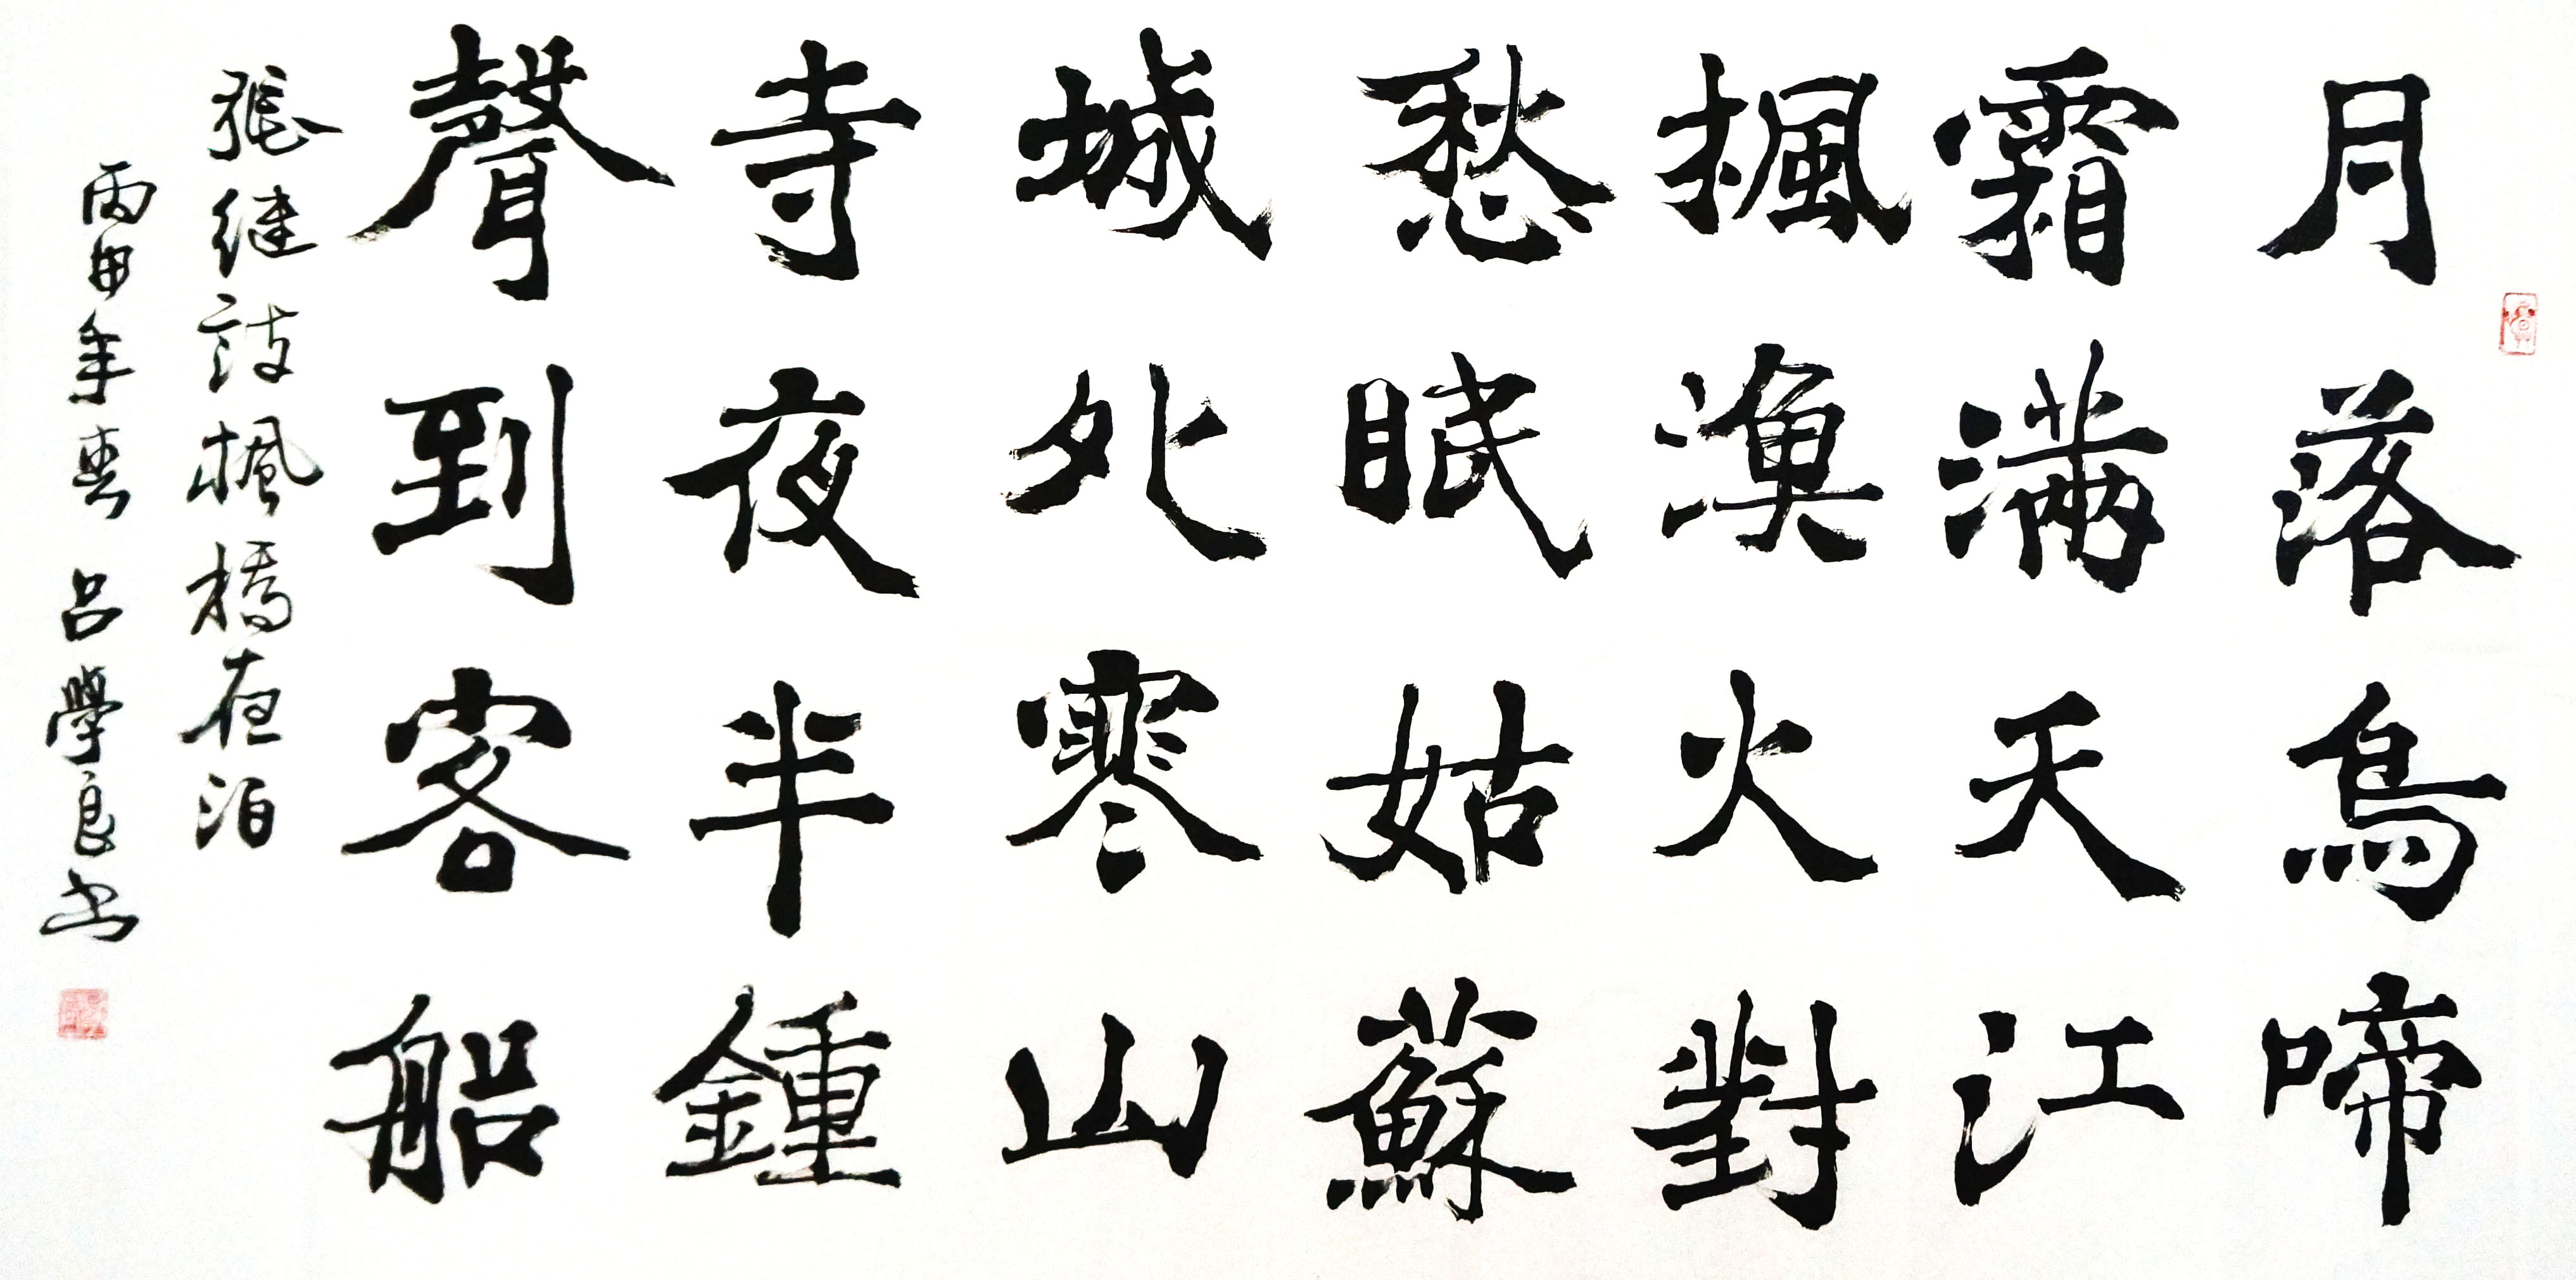 月落烏啼
霜滿天江
楓漁火對
愁眠姑蘇
城外寒山
寺夜半鍾
聲到客船
張继詩楓橋夜泊
丙申年春 吕學良书